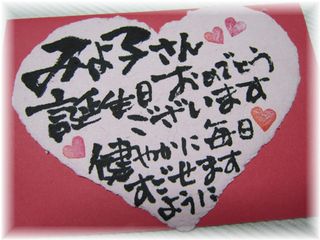 みよ子さん
誕生日おめでとう
ございます
健やかに毎日
すごせます
ように